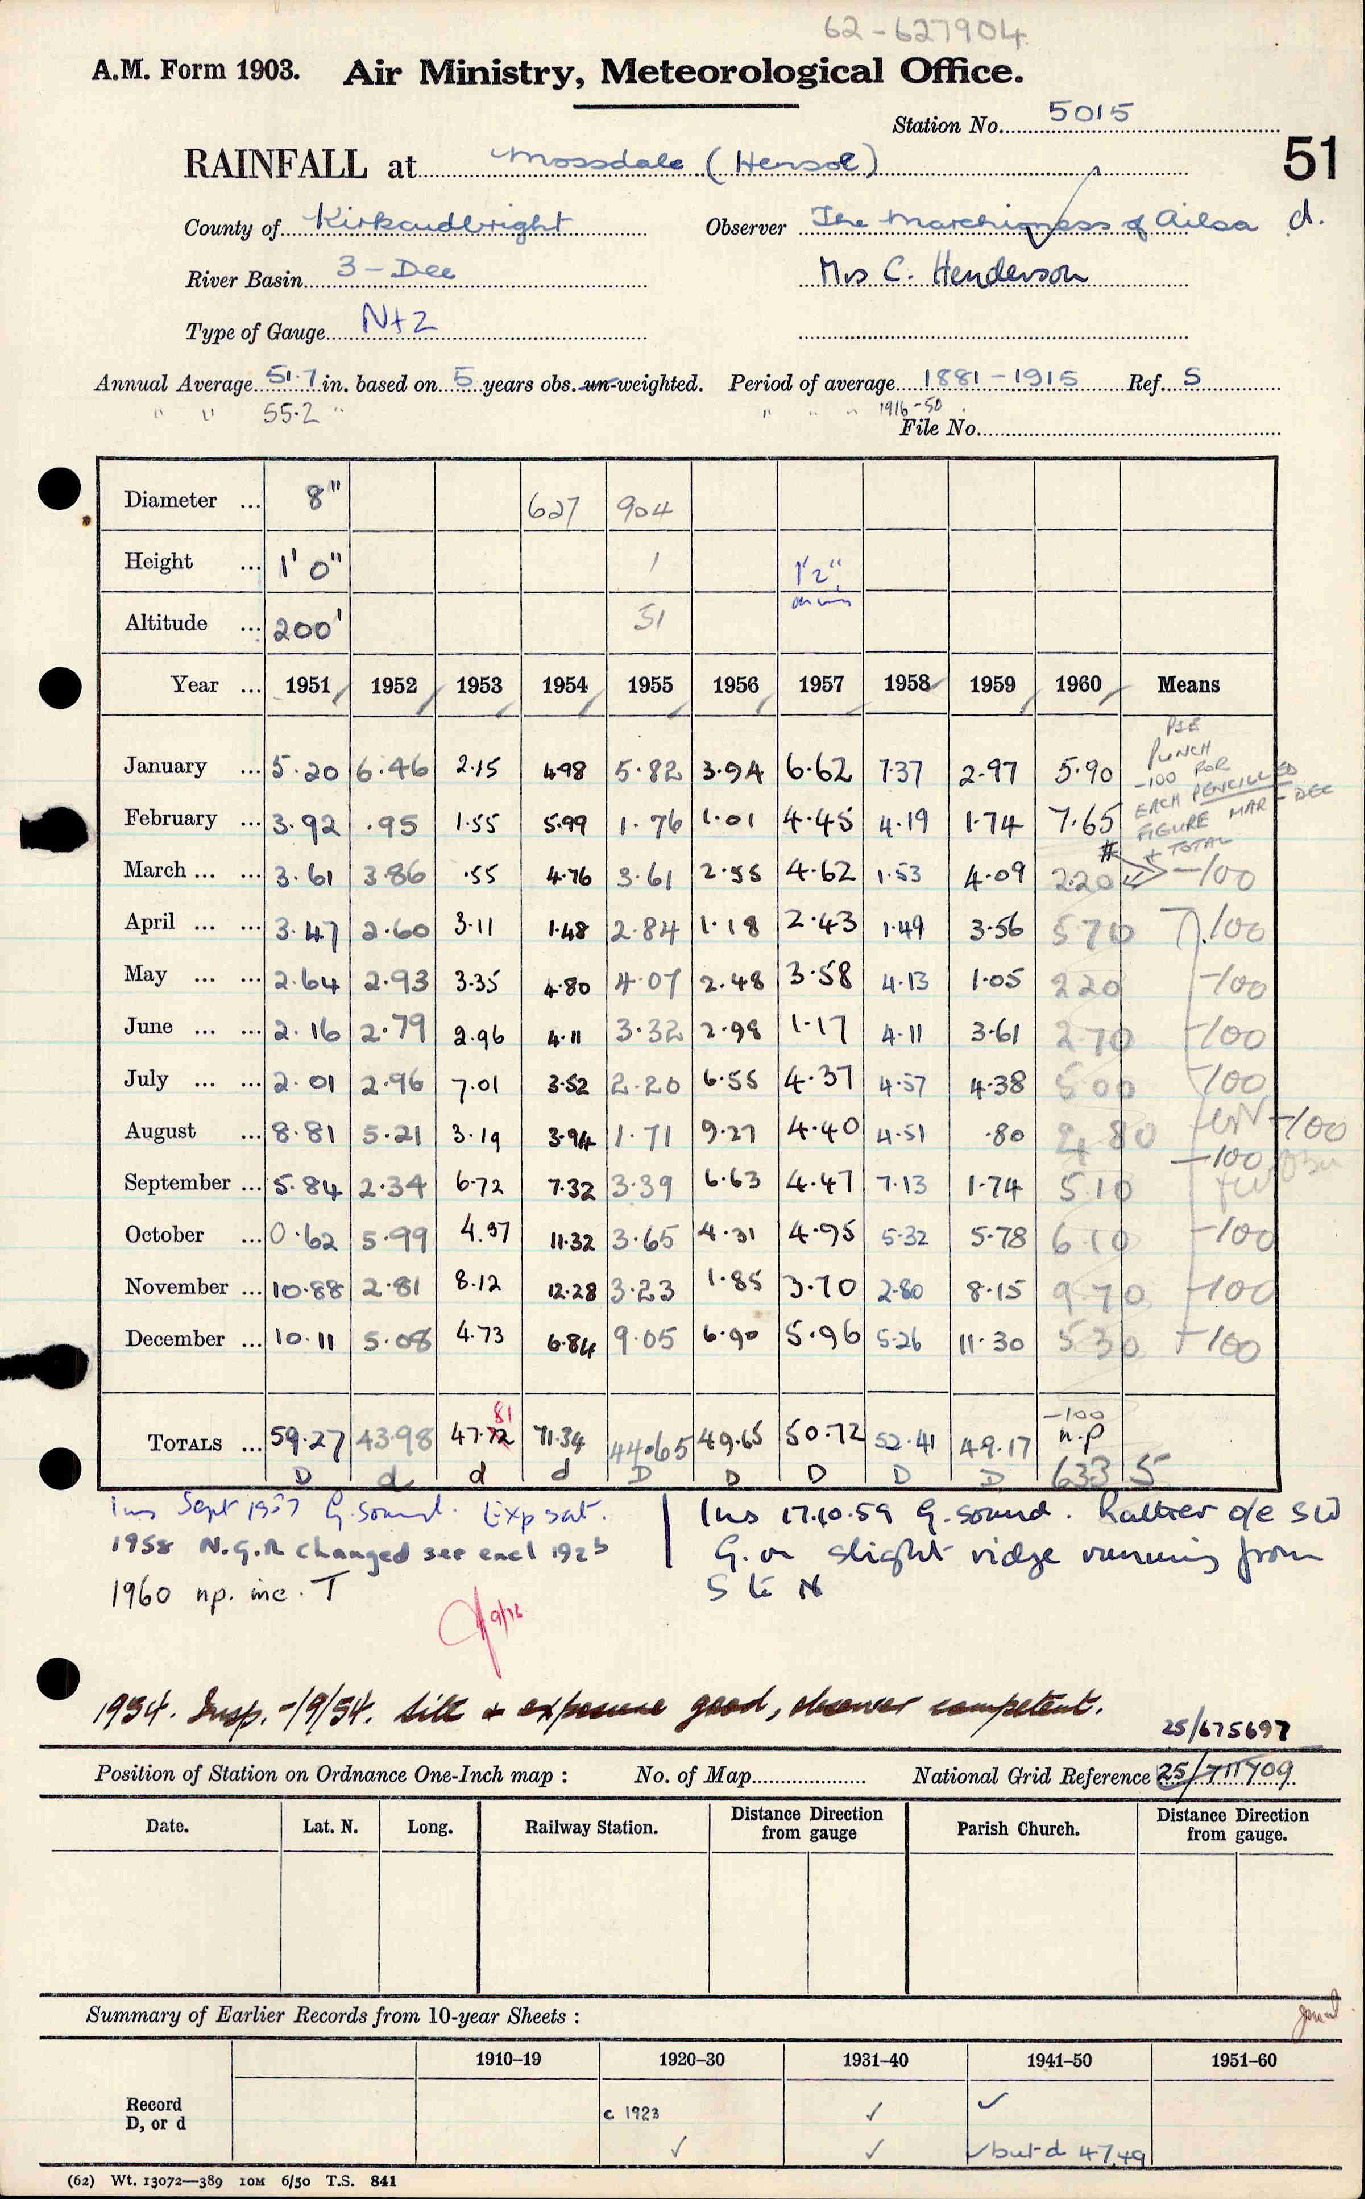 62-627904
A.M. Form 1903. Air Ministry, Meteorological Office.
Station No. 5015
RAINFALL at Mossdale (Hensol)
51
County of Kirkcudbright Observer The Marchioness of Ailsa d.
River Basin 3 - Dee Mrs C. Henderson
Type of Gauge N+2
Annual Average 51.7 in. based on 5 years obs. un-weighted. Period of average 1881-1915 Ref. S
" " 55.2 " " " " 1916-50
File No.
Diameter ... 8" 627 904
Height ... 1' 0" 1 1'2"
Altitude ... 200' 51
Year ... 1951 1952 1953 1954 1955 1956 1957 1958 1959 1960 Means
PSE PUNCH -100 FOR EACH PENCILLED FIGURE MAR-DEC + TOTAL
January ... 5.20 6.46 2.15 4.98 5.82 3.94 6.62 7.37 2.97 5.90
February ... 3.92 .95 1.55 5.99 1.76 1.01 4.45 4.19 1.74 7.65
March ... ... 3.61 3.86 .55 4.76 3.61 2.55 4.62 1.53 4.09 220 # -100
April ... ... 3.47 2.60 3.11 1.48 2.84 1.18 2.43 1.49 3.56 570 -100
May ... ... 2.64 2.93 3.35 4.80 4.07 2.48 3.58 4.13 1.05 220 -100
June ... ... 2.16 2.79 2.96 4.11 3.32 2.98 1.17 4.11 3.61 2.70 -100
July ... ... 2.01 2.96 7.01 3.52 2.20 6.55 4.37 4.57 4.38 500 -100
August ... 8.81 5.21 3.19 3.94 1.71 9.27 4.40 4.51 .80 80 -100
September ... 5.84 2.34 6.72 7.32 3.39 6.63 4.47 7.13 1.74 510 -100
October ... 0.62 5.99 4.37 11.32 3.65 4.31 4.95 5.32 5.78 610 -100
November ... 10.88 2.81 8.12 12.28 3.23 1.85 3.70 2.80 8.15 970 -100
December ... 10.11 5.08 4.73 6.84 9.05 6.90 5.96 5.26 11.30 530 -100
81 -100
TOTALS ... 59.27 43.98 47.72 71.34 44.65 49.65 50.72 52.41 49.17 n.p
D d d d D D D D D 633 5
Ins Sept 1957 G. sound. Exp sat.
1958 N.G.R changed see encl 1925
1960 np. inc. T
Ins 17.10.59 G. sound. Rather o/e SW
G. on slight ridge running from
S to N
9/76
1954. Insp. -/9/54. Site + exposure good, observer competent.
25/675697
Position of Station on Ordnance One-Inch map : No. of Map National Grid Reference 25/711709
Date. Lat. N. Long. Railway Station. Distance Direction from gauge Parish Church. Distance Direction from gauge.
Summary of Earlier Records from 10-year Sheets :
1910-19 1920-30 1931-40 1941-50 1951-60
Record
D, or d
c 1923 ✓ ✓
✓ ✓ ✓ but d 47,49
(62) Wt. 13072—389 10M 6/50 T.S. 841